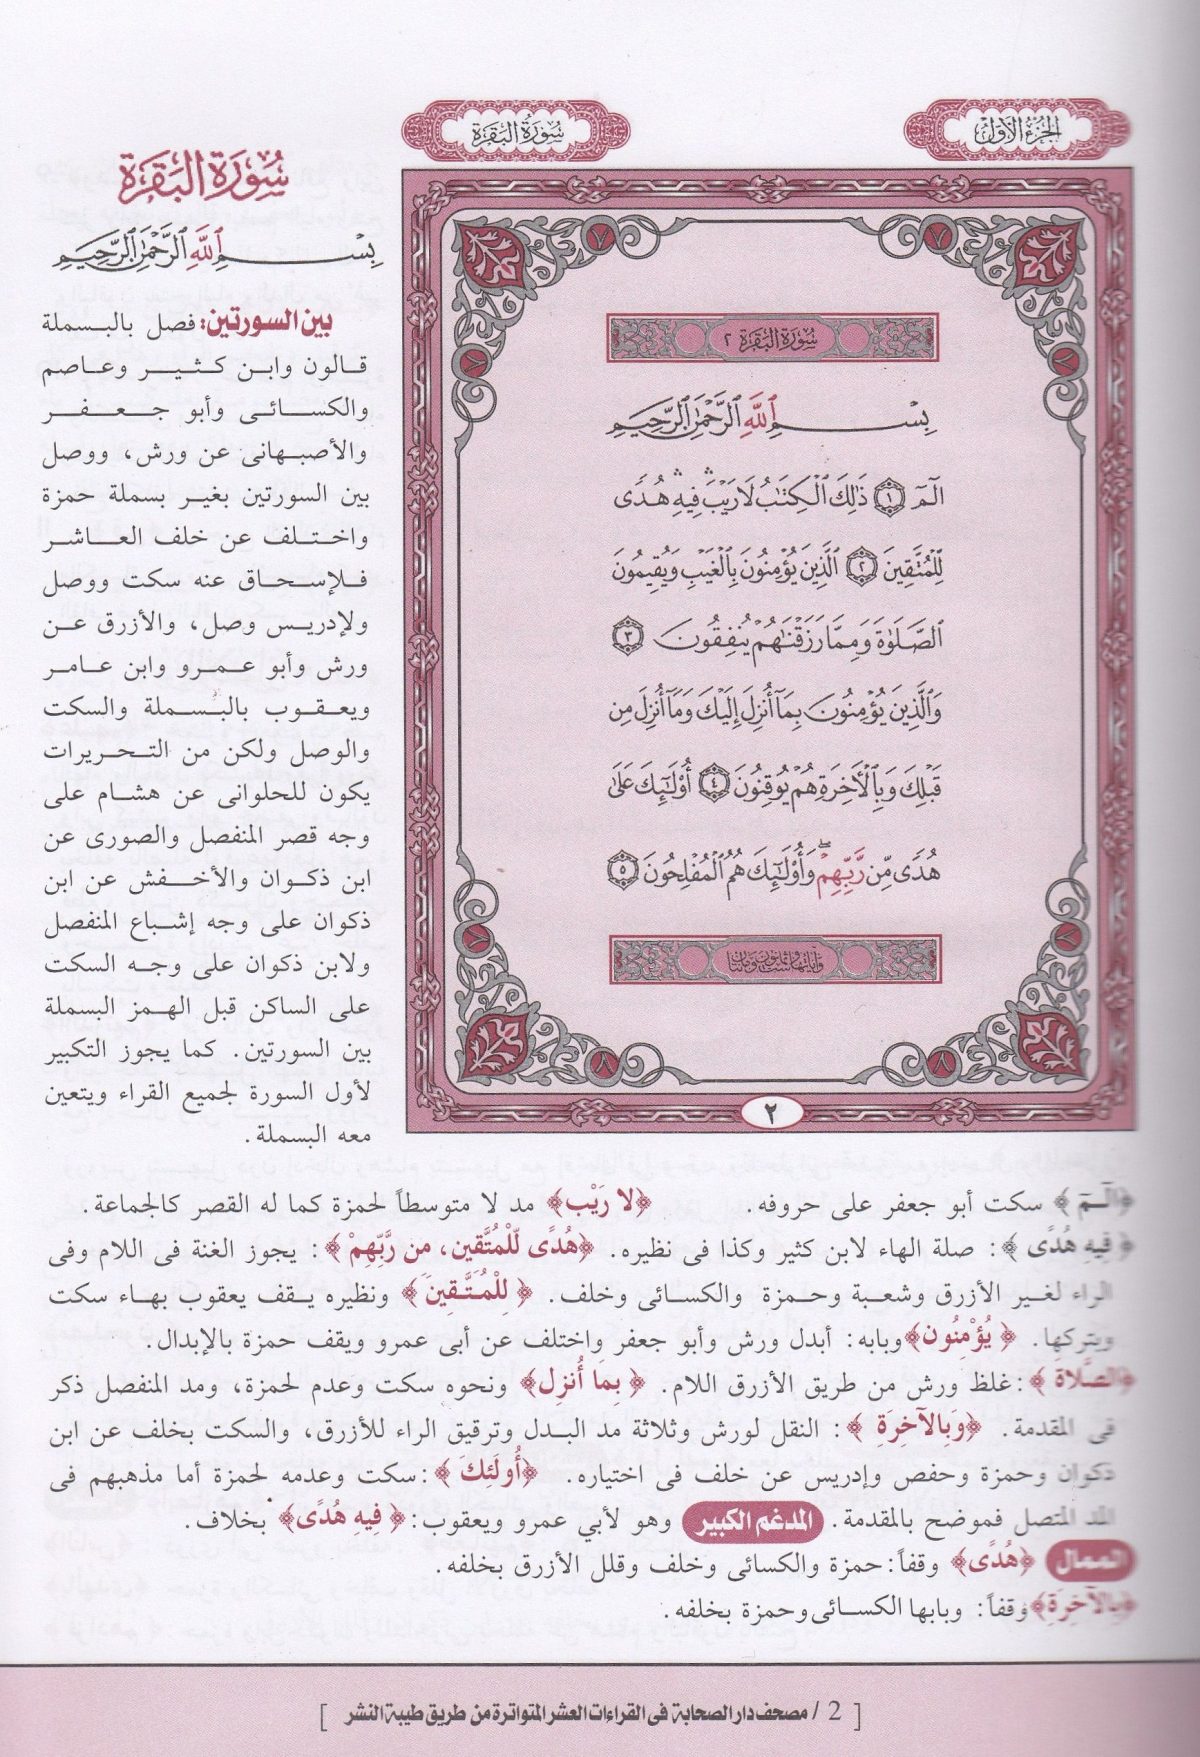 الجزء الأول
سورة البقرة
سورة البقرة ٢
بسم ٱلله ٱلرحمٰن ٱلرحيم
الٓمٓ ١ ذَٰلِكَ ٱلْكِتَٰبُ لَا رَيْبَۛ فِيهِۛ هُدًى
لِّلْمُتَّقِينَ ٢ ٱلَّذِينَ يُؤْمِنُونَ بِٱلْغَيْبِ وَيُقِيمُونَ
ٱلصَّلَوٰةَ وَمِمَّا رَزَقْنَٰهُمْ يُنفِقُونَ ٣
وَٱلَّذِينَ يُؤْمِنُونَ بِمَآ أُنزِلَ إِلَيْكَ وَمَآ أُنزِلَ مِن
قَبْلِكَ وَبِٱلْأَخِرَةِ هُمْ يُوقِنُونَ ٤ أُوْلَٰٓئِكَ عَلَىٰ
هُدًى مِّن رَّبِّهِمْۖ وَأُوْلَٰٓئِكَ هُمُ ٱلْمُفْلِحُونَ ٥
وآياتها ست وثمانون ومائتان
٢
سورة البقرة
بسم ٱلله ٱلرحمٰن ٱلرحيم
بين السورتين: فصل بالبسملة
قالون وابن كثير وعاصم
والكسائى وأبو جعفر
والأصبهانى عن ورش، ووصل
بين السورتين بغير بسملة حمزة
واختلف عن خلف العاشر
فلإسحاق عنه سكت ووصل
ولإدريس وصل، والأزرق عن
ورش وأبو عمرو وابن عامر
ويعقوب بالبسملة والسكت
والوصل ولكن من التحريرات
يكون للحلوانى عن هشام على
وجه قصر المنفصل والصورى عن
ابن ذكوان والأخفش عن ابن
ذكوان على وجه إشباع المنفصل
ولابن ذكوان على وجه السكت
على الساكن قبل الهمز البسملة
بين السورتين. كما يجوز التكبير
لأول السورة لجميع القراء ويتعين
معه البسملة.
﴿الٓـمٓ﴾ سكت أبو جعفر على حروفه. ﴿لا رَيْب﴾ مد لا متوسطاً لحمزة كما له القصر كالجماعة.
﴿فِيهِ هُدًى﴾: صلة الهاء لابن كثير وكذا فى نظيره. ﴿هُدًى لِّلْمُتَّقِين، من رَّبِّهِمْ﴾: يجوز الغنة فى اللام وفى
الراء لغير الأزرق وشعبة وحمزة والكسائى وخلف. ﴿لِلْمُتَّقِينَ﴾ ونظيره يقف يعقوب بهاء سكت
ويتركها. ﴿يُؤْمِنُون﴾ وبابه: أبدل ورش وأبو جعفر واختلف عن أبى عمرو ويقف حمزة بالإبدال.
﴿الصَّلاة﴾: غلظ ورش من طريق الأزرق اللام. ﴿بِما أُنزِل﴾ ونحوه سكت وعدم لحمزة، ومد المنفصل ذكر
فى المقدمة. ﴿وَبِالآخِرَةِ﴾: النقل لورش وثلاثة مد البدل وترقيق الراء للأزرق، والسكت بخلف عن ابن
ذكوان وحمزة وحفص وإدريس عن خلف فى اختياره. ﴿أُولَئِكَ﴾: سكت وعدمه لحمزة أما مذهبهم فى
المد المتصل فموضح بالمقدمة. المدغم الكبير وهو لأبي عمرو ويعقوب: ﴿فِيهِ هُدًى﴾ بخلاف.
الممال ﴿هُدًى﴾ وقفاً: حمزة والكسائى وخلف وقلل الأزرق بخلفه.
﴿بِالآخِرَةِ﴾ وقفاً: وبابها الكسائى وحمزة بخلفه.
[ 2 / مصحف دار الصحابة فى القراءات العشر المتواترة من طريق طيبة النشر ]